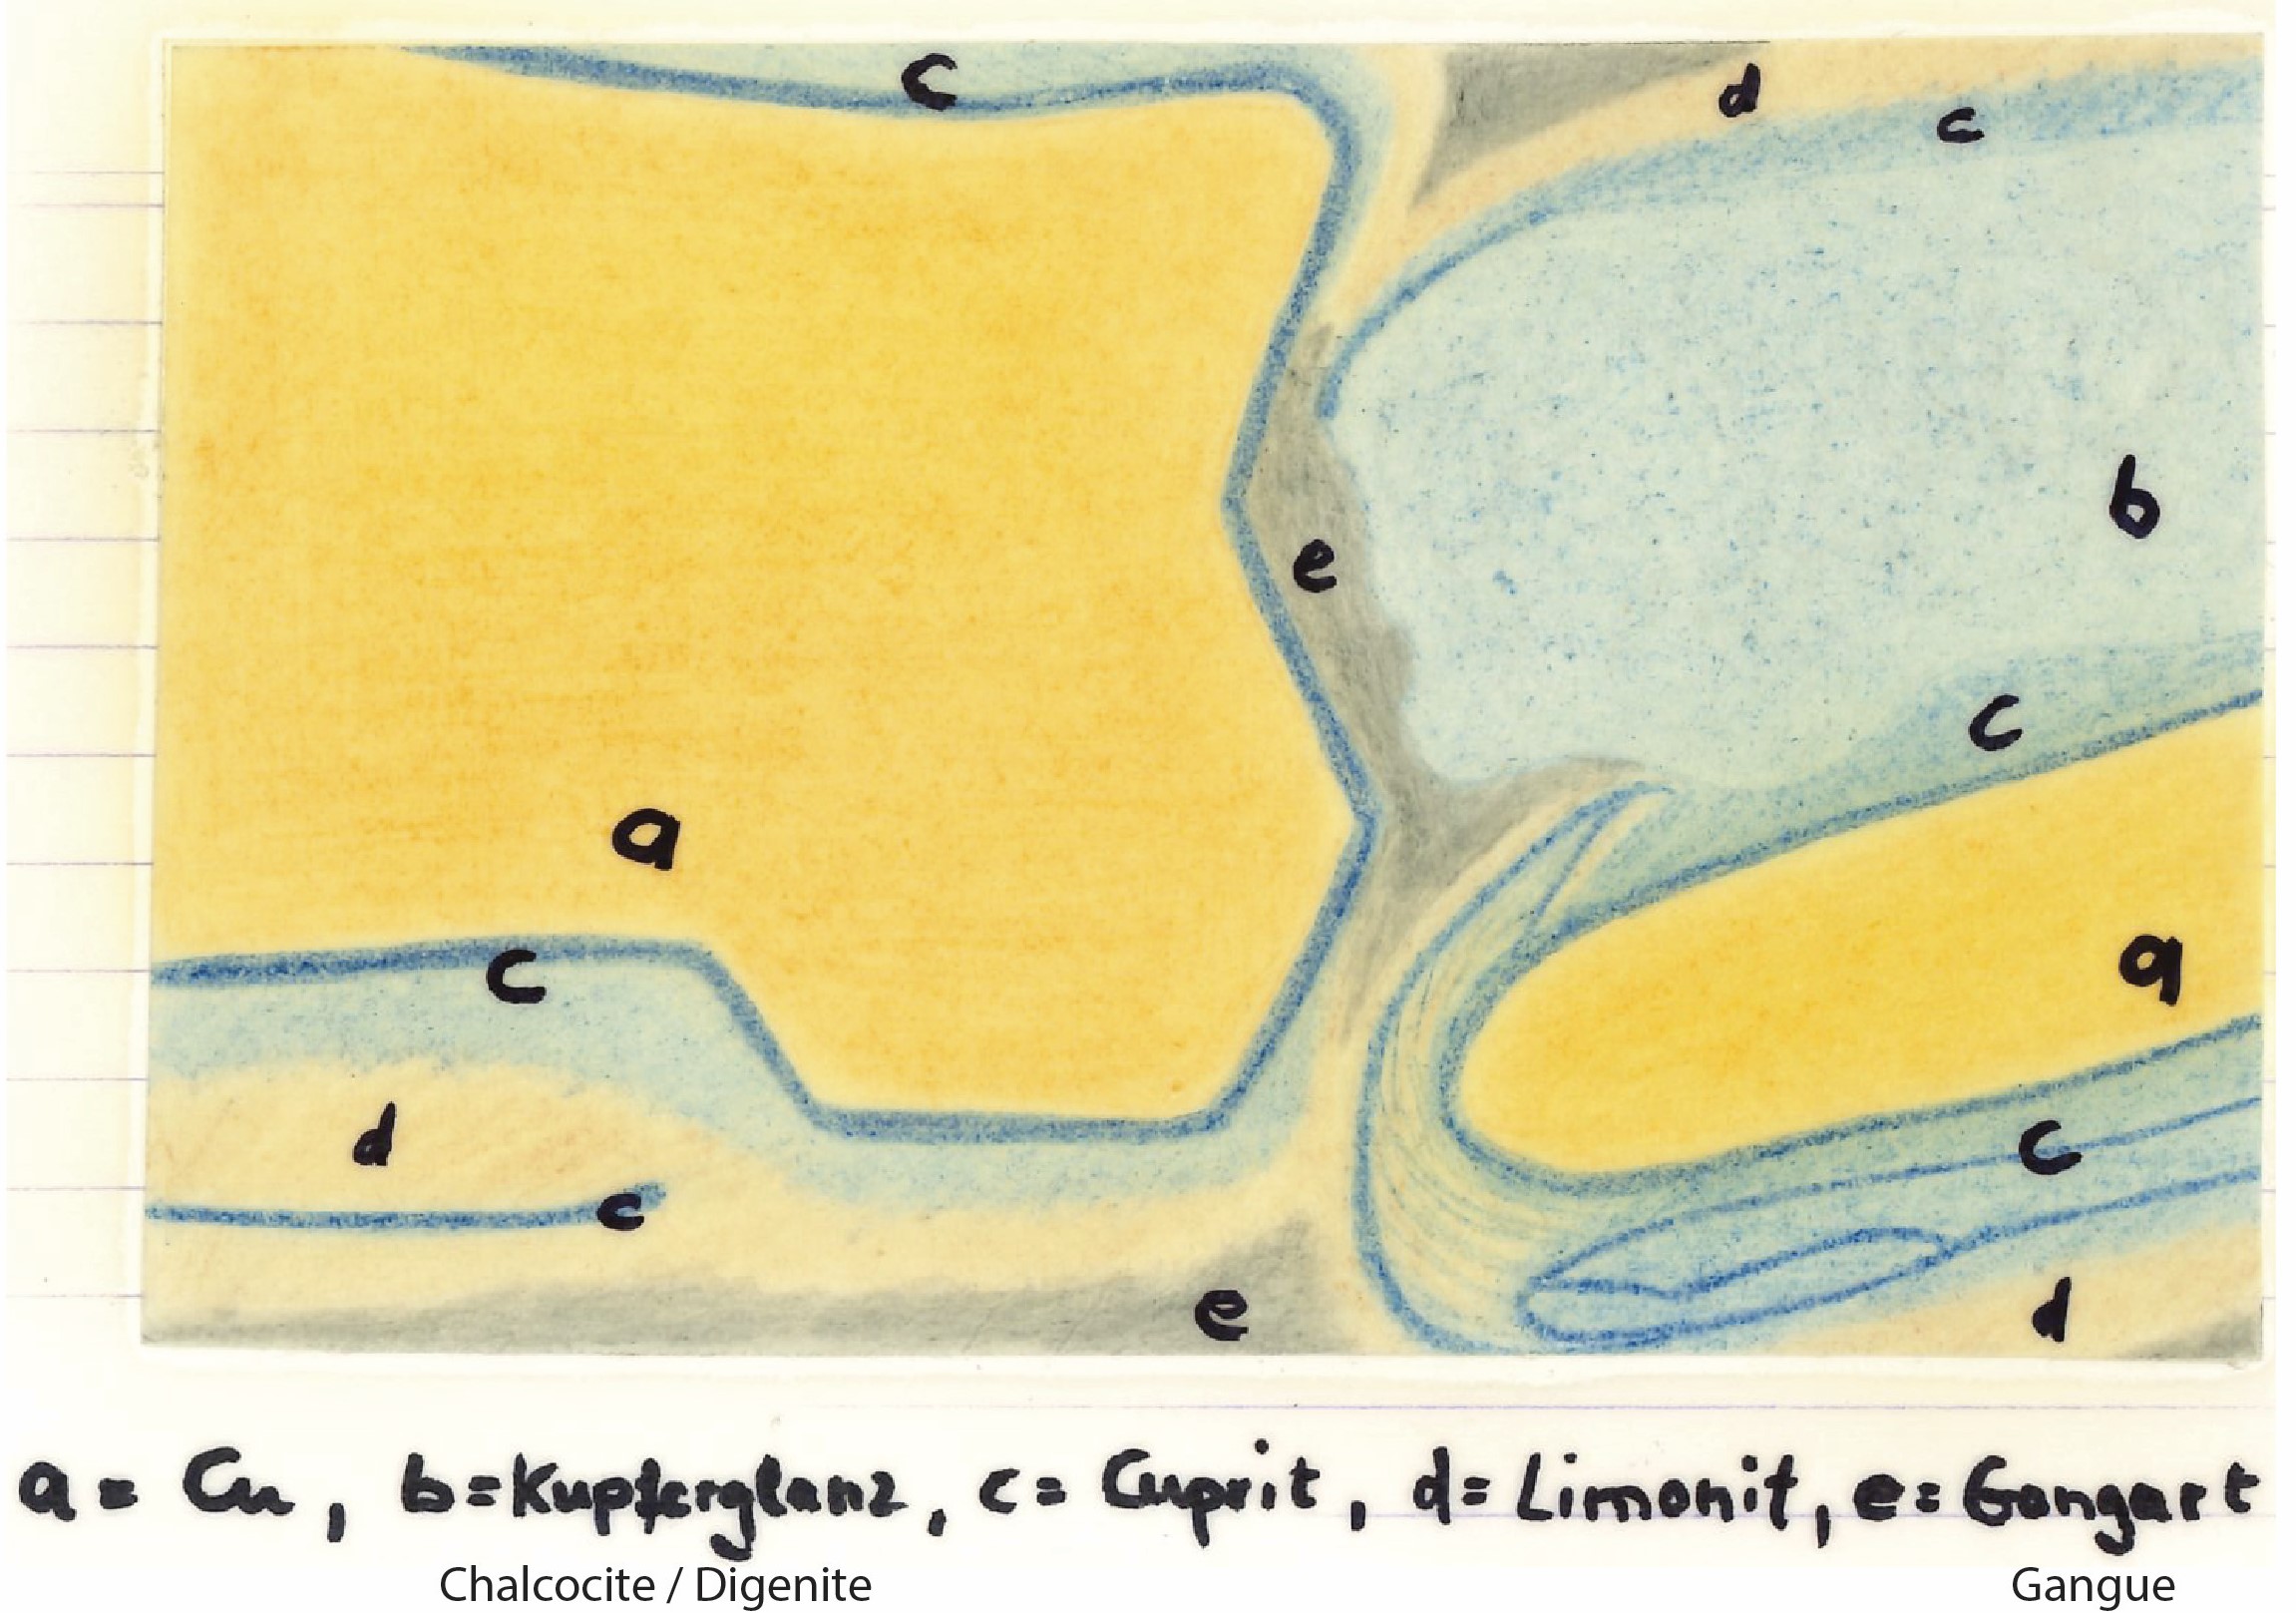 c
d
c
b
e
c
a
a
c
c
d
c
e
d
a = Cu, b=Kupferglanz, c= Cuprit, d= Limonit, e= Gangart
Chalcocite / Digenite Gangue